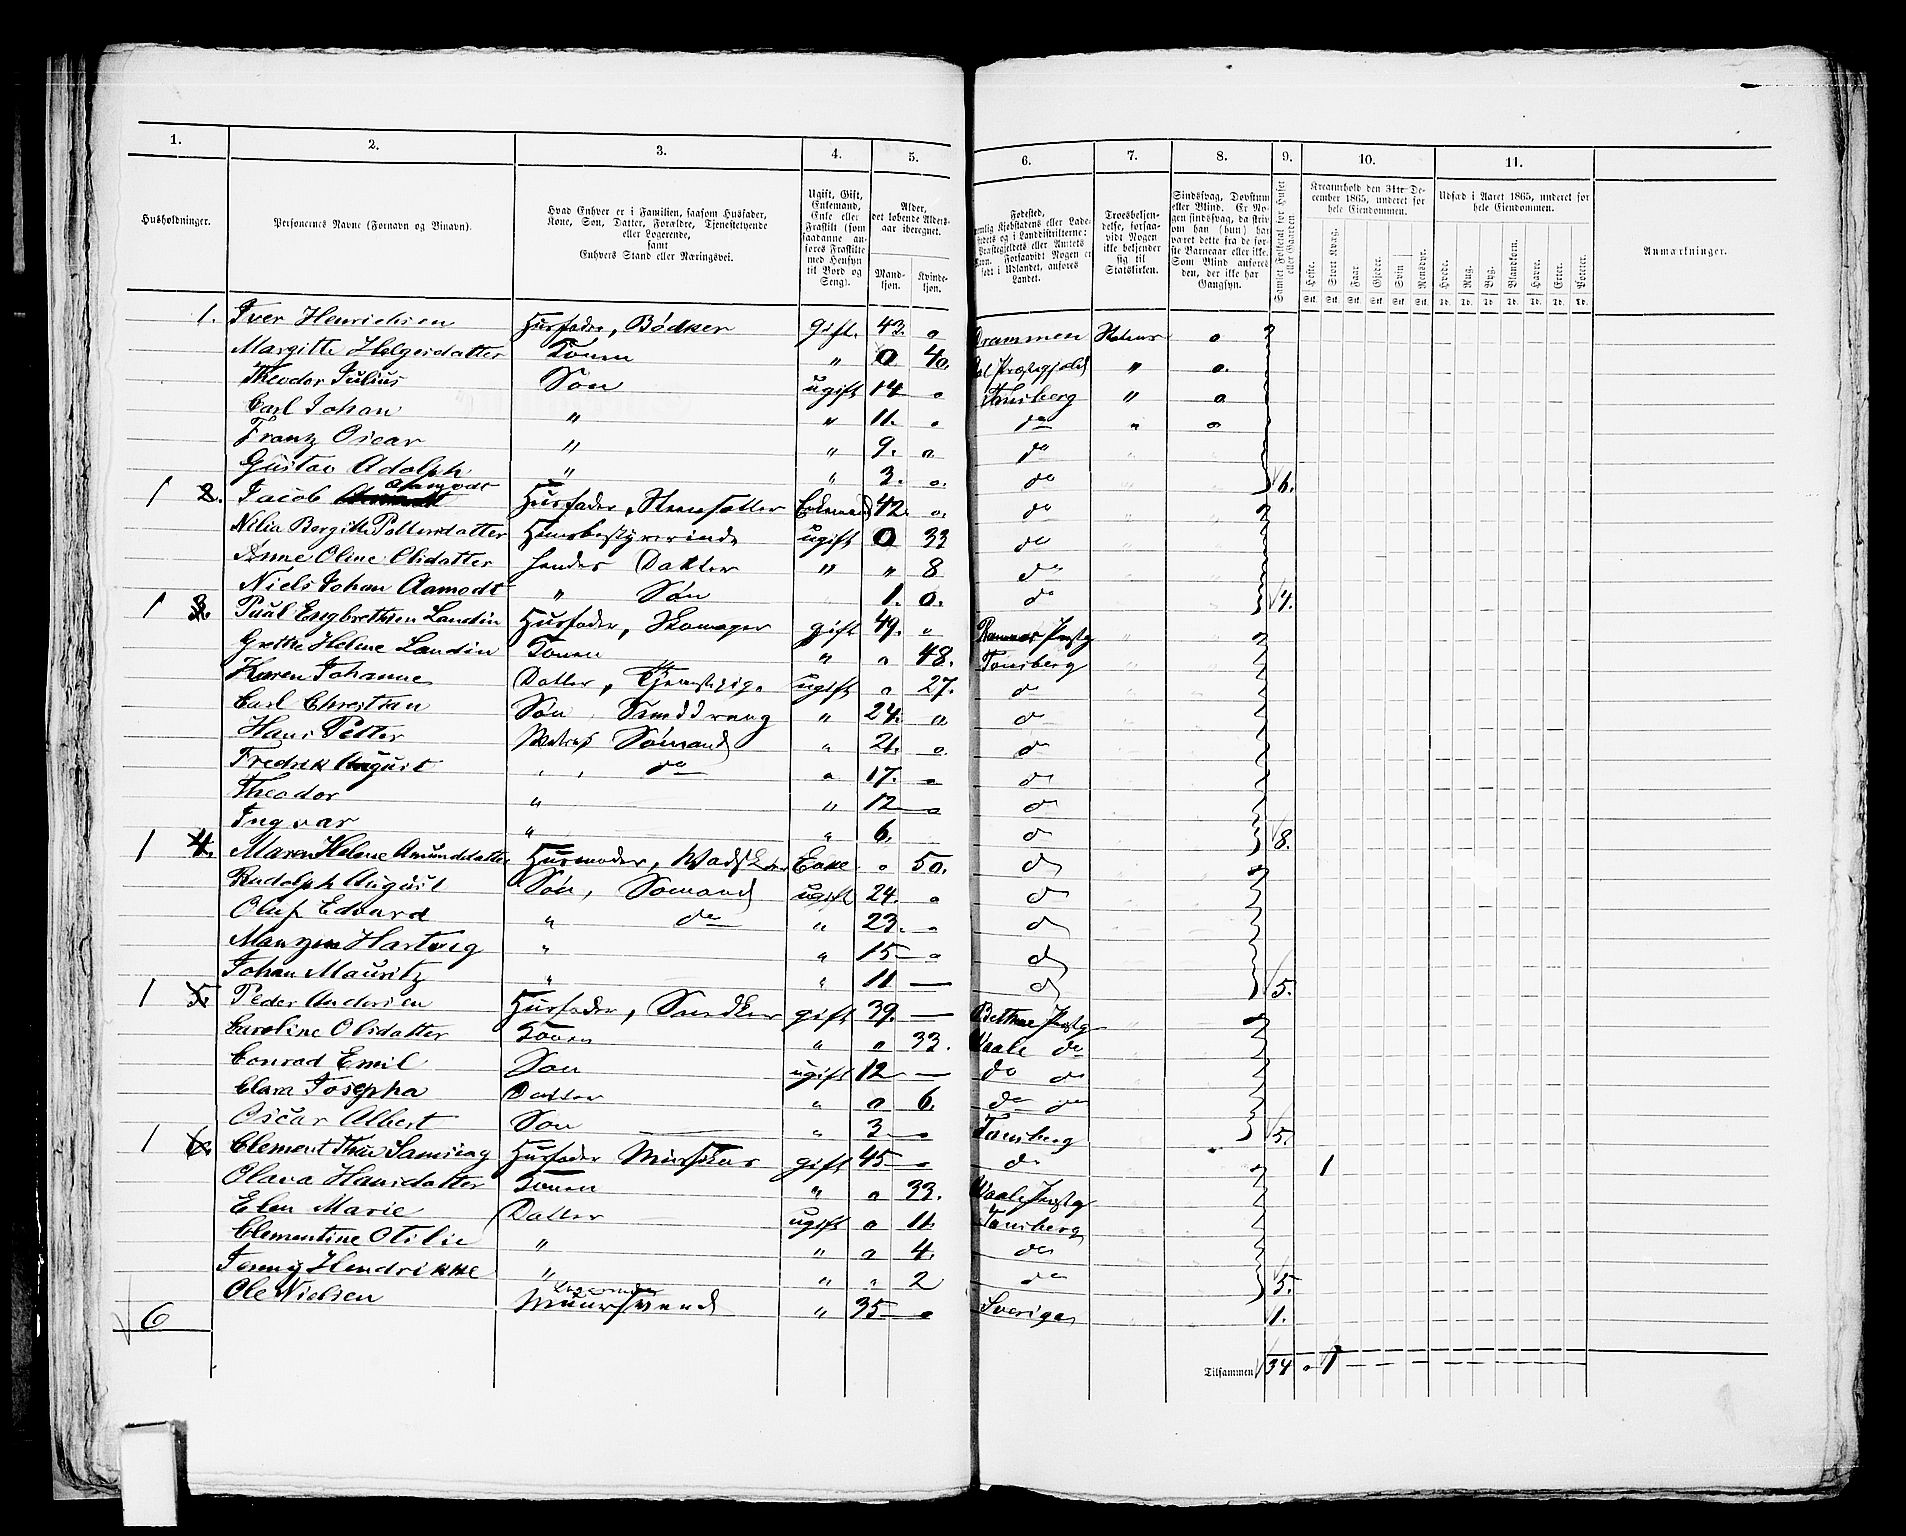 1. 2. 3. 4. 5. 6. 7. 8. 9. 10. 11.
Husholdninger.
Personernes Navne (Fornavn og Binavn).
Hvad Enhver er i Familien, saasom Husfader, Kone, Søn, Datter, Forældre, Tjenestetyende eller Logerende, samt Enhvers Stand eller Næringsvei.
Ugift, Gift, Enkemand, Enke eller Fraskilt (som saadanne anføres Fraskilte med Hensyn til Bord og Seng).
Alder, det løbende Aldersaar iberegnet.
Mandkjøn. Kvindekjøn.
Fødested,
Troesbekjendelse, forsaavidt Nogen ikke bekjender sig til Statskirken.
Sindssvag, Døvstum eller Blind. Er Nogen sindssvag, da skriv han (hun) har været dette fra de første Barneaar eller ikke. Som Blind anføres den, der ikke har Gangsyn.
Samlet Folketal for Huset eller Gaarden
Kreaturhold den 31te December 1865, underet for hele Eiendommen.
Heste. Stort Kvæg. Faar. Gjeder. Svin. Rensdyr.
Udsæd i Aaret 1865, underet for hele Eiendommen.
Hvede. Rug. Byg. Blandkorn. Havre. Erter. Poteter.
Anmærkninger.
1. Iver Henrichsen Husfader, Bødker gift. 43. o Drammen Statens o
Margitte Helgesdatter Konen " 0 40. Præstegjeld " o.
Theodor Julius Søn ugift 14 o Tønsberg " o
Carl Johan " " 11. o do " o
Franz Oscar " " 9. o do
Gustav Adolph " " 3. o. do 6.
1 2. Jacob Aamodt Husfader, Steensætter Enkemand 42. o. do
Nilia Bergitte Pettersdatter Huusbestyrerinde ugift 0 33 do
Anne Oline Olsdatter hendes Datter " " 8 do
Niels Johan Aamodt " Søn 1. 0. do 4.
1 3. Paul Engbretsen Landin Husfader, Skomager gift 49. " Præstg
Grethe Helene Landin Konen " o 48. Tønsberg
Karen Johanne Datter, Tjenestepige ugift o 27. do
Carl Christian Søn, Smeddreng " 24. o do
Hans Petter Sømand " 21. o do
Fredrik August " do " 17. o do
Theodor " " 12 o do
Ingvar " " 6. do 8.
1 4. Maren Helene Amundsdatter Husmoder, Enke o 50. do
Rudolph August Søn, Sømand ugift 24. o do
Oluf Edvard " do " 23. o do
Hartvig " " 15 o do
Johan Mauritz " " 11 — do 5.
1 5. Peder Andersen Husfader, Snedker gift 39. — Præstg
Caroline Olsdatter Konen " o 33. Vaale do
Conrad Emil Søn ugift 12 — do do
Clara Josepha Datter " o 6. do do
Oscar Albert Søn " 3 o Tønsberg 5.
1 6. Clement Husfader gift 45 o do 1
Olava Hansdatter Konen " o 33. Vaale Præstg
Elen Marie Datter ugift o 11. Tønsberg
Clementine Otilie " " o 4. do
Jenny Hendrikke " " " 2 do 5.
Ole Nielsen Logerende Muursvend " 35 o Sverige 1.
6
Tilsammen 34 o 1 — — — — — — — — — — —